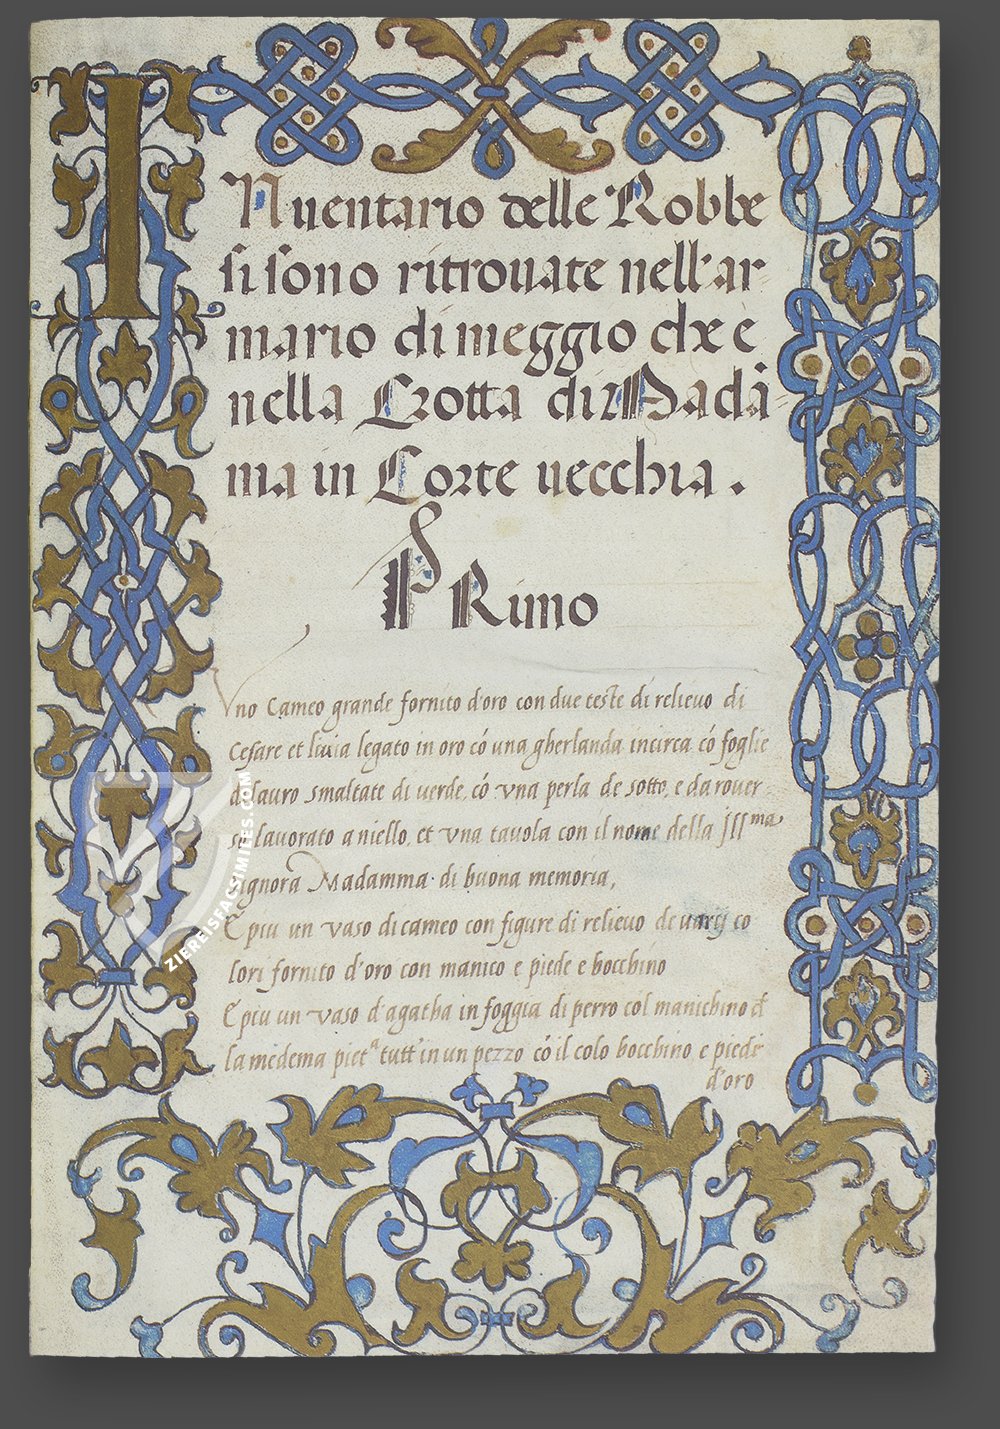 INuentario delle Robbe
si sono ritrouate nell'ar
mario di meggio che è
nella Grotta di Madā
ma in Corte uecchia.
Primo
Vno Cameo grande fornito d'oro con due teste di relieuo di
Cesare et liuia legato in oro cō una gherlanda incirca cō foglie
di lauro smaltate di uerde, cō vna perla de sotto, e da rouer
so lauorato a niello, et vna tauola con il nome della Illma
signora Madamma di buona memoria,
E piu un vaso di cameo con figure di relieuo de uarij co
lori fornito d'oro con manico e piede e bocchino
E piu un vaso d'agatha in foggia di perro col manichino
la medema pieta tutt'in un pezzo cō il colo bocchino e piede
d'oro
ZIEREISFACSIMILES.COM